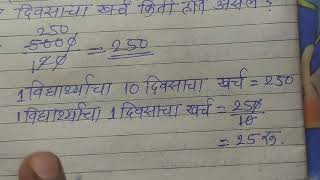 दिवसाचा खर्च किती होत असेल ?
250
5000
120 = 250
1 विद्यार्थ्याचा 10 दिवसाचा खर्च = 250
1 विद्यार्थ्याचा 1 दिवसाचा खर्च = 250
10
= 25 रु.